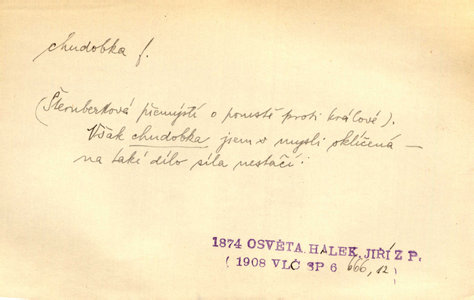 chudobka f.
(Šternberková přemýslí o pomstě proti králové).
Však chudobka jsem v mysli sklíčená —
na také dílo síla nestačí.
1874 OSVĚTA. HÁLEK, JIŘÍ Z P.
( 1908 VLČ SP 6 666, 12)